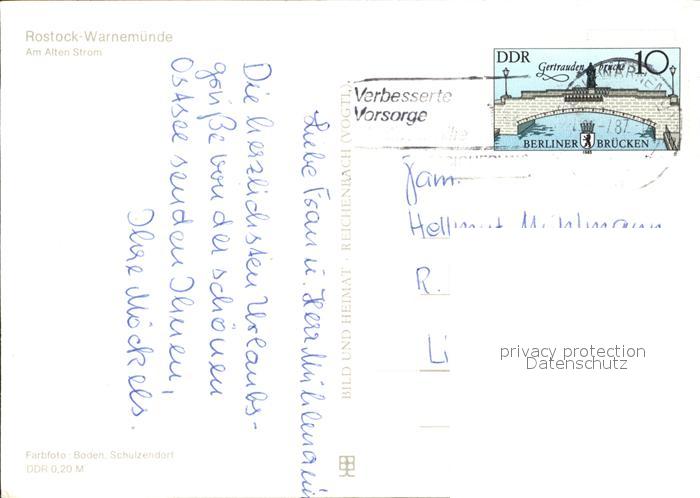 Rostock-Warnemünde
Am Alten Strom
Liebe Frau u. Herr Mühlmann
Die herzlichsten Urlaubs-
grüße von der schönen
Ostsee senden Ihnen,
Ihre Möckels.
Farbfoto: Boden, Schulzendorf
DDR 0,20 M
BILD UND HEIMAT · REICHENBACH (VOGTL
Verbesserte
Vorsorge
DDR
Gertraudenbrücke
10
BERLINER BRÜCKEN
1985
Fam.
Hellmut Mühlmann
R.
Li
privacy protection
Datenschutz